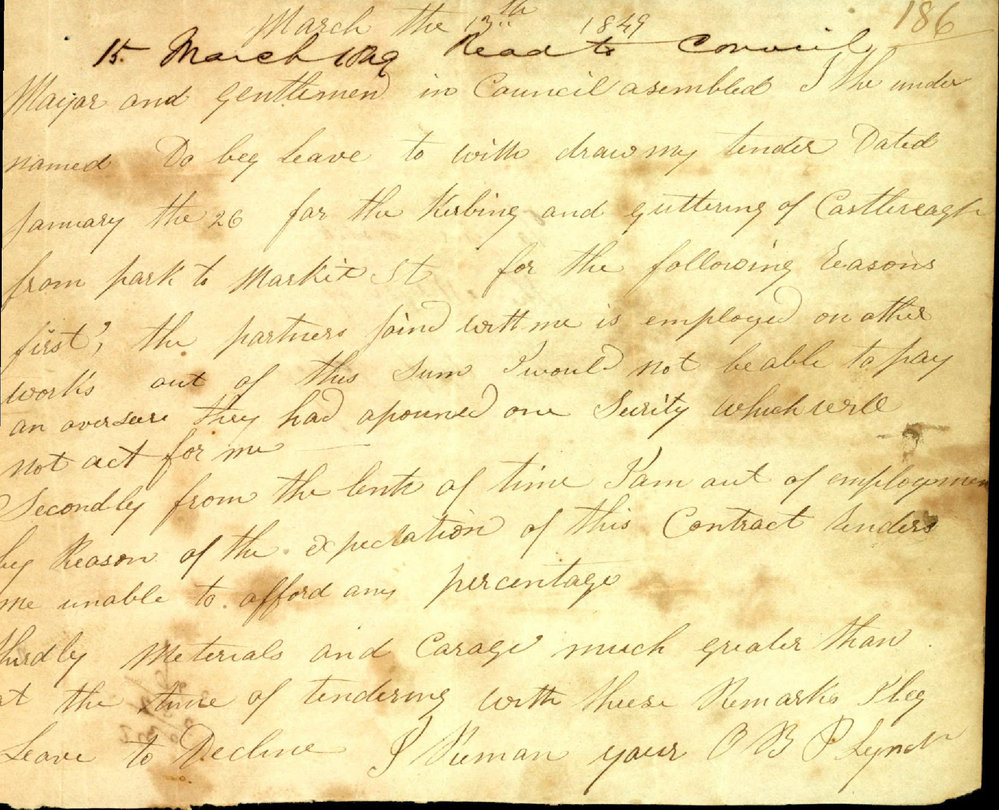 186
March the 13th 1849
15 March 1849 Read to Council
Mayar and gentlemen in Council asembled I the under
named Do beg leave to with draw my tender Dated
January the 26 for the Kirbing and guttering of Castlereagh
from park to Markit St for the following Reasons
first, the partners joind with me is employed on other
works out of this sum I would not be able to pay
an they had apouned one Surity which will
not act for me
Secondly from the lenth of time I am out of employmen
by Reason of the expectation of this Contract tenders
me unable to afford any percentage
thirdly Meterials and Carage much greater than
at the time of tendering with these Remarks I beg
Leave to Decline I Reman your O B P Lynch